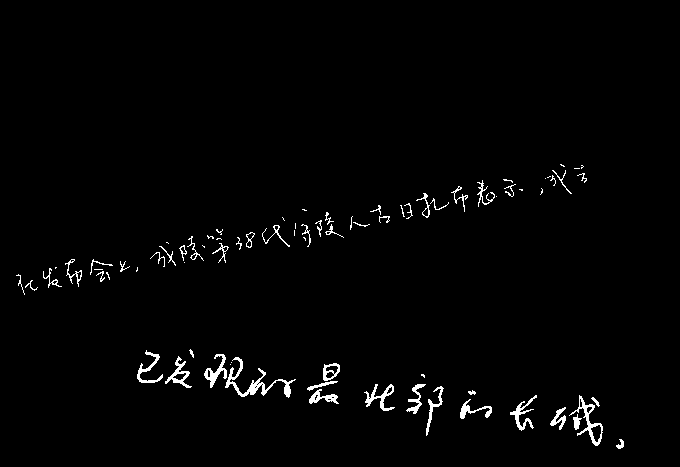 在发布会上,成陵第38代守陵人古日扎布表示,成吉
已发现的最北部的长城。